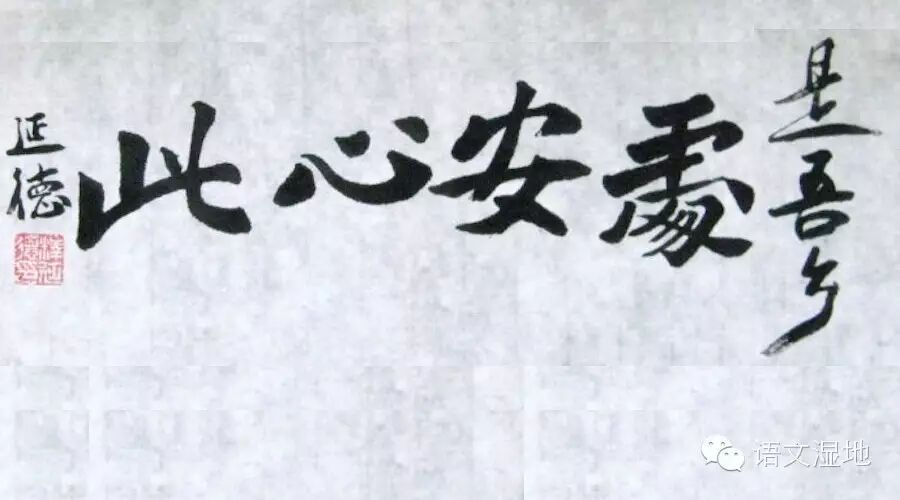 此心安處
是吾乡
延德
语文湿地